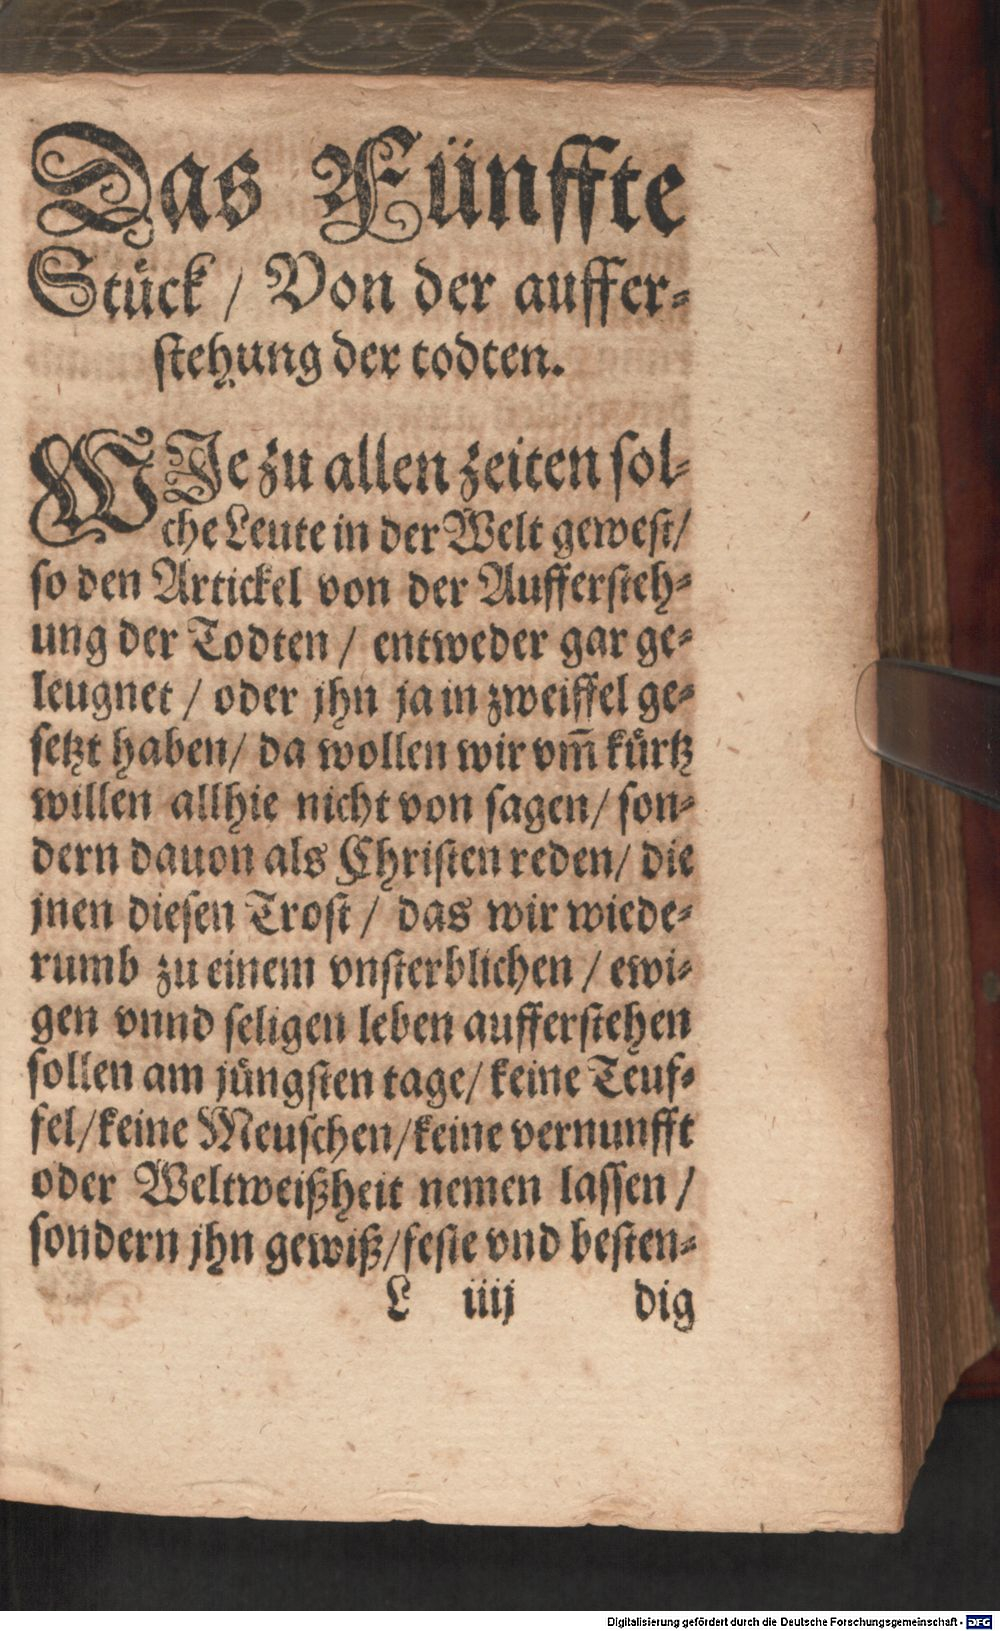 Das Fünffte
Stück / Von der auffer-
stehung der todten.
WJe zu allen zeiten sol-
che Leute in der Welt gewest/
so den Artickel von der Auffersteh-
ung der Todten / entweder gar ge-
leugnet / oder jhn ja in zweiffel ge-
setzt haben/ da wollen wir vm̃ kürtz
willen allhie nicht von sagen/ son-
dern dauon als Christen reden/ die
jnen diesen Trost / das wir wiede-
rumb zu einem vnsterblichen / ewi-
gen vnnd seligen leben aufferstehen
sollen am jüngsten tage/ keine Teuf-
fel/keine Meuschen/keine vernunfft
oder Weltweißheit nemen lassen /
sondern jhn gewiß/feste vnd besten-
L iiij dig
Digitalisierung gefördert durch die Deutsche Forschungsgemeinschaft - DFG